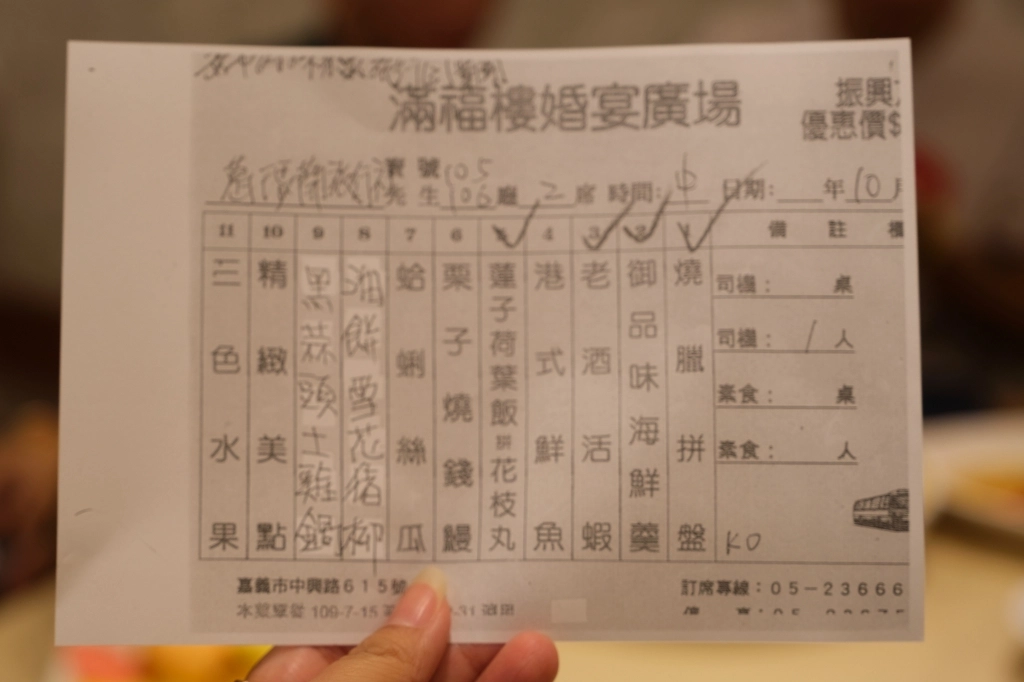 滿福樓婚宴廣場
振興
優惠價$
寶號 105
先生 106 廳 2 席 時間: 中 日期: 年 10 月
1 燒臘拼盤
2 御品味海鮮羹
3 老酒活蝦
4 港式鮮魚
5 蓮子荷葉飯拼花枝丸
6 栗子燒錢鰻
7 蛤蜊絲瓜
8 湘餅雪花豬柳
9 黑蒜頭土雞鍋
10 精緻美點
11 三色水果
備註欄
司機: 桌
司機: 1 人
素食: 桌
素食: 人
KO
嘉義市中興路615號
訂席專線:05-23666
109-7-15